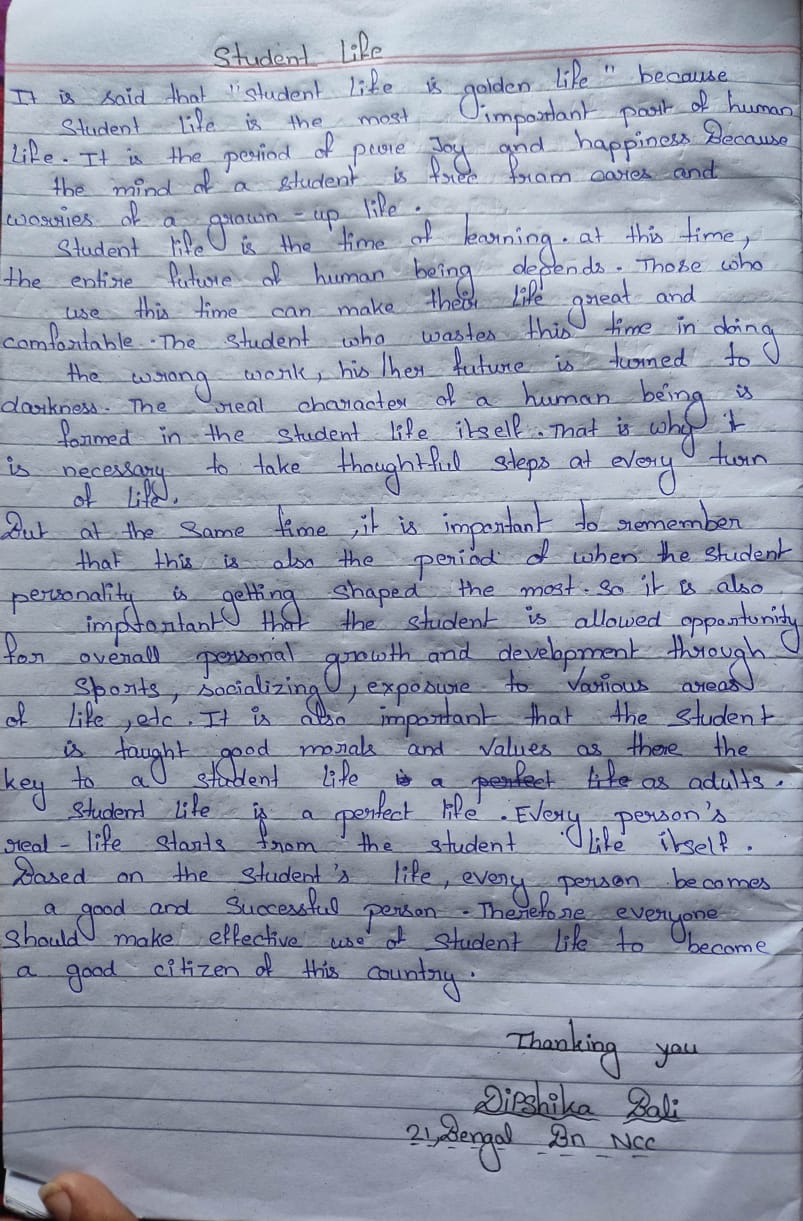 Student Life
It is said that "student life is golden life" because
Student life is the most important part of human
life. It is the period of pure Joy and happiness Because
the mind of a student is free from cares and
worries of a grown-up life.
Student life is the time of learning. at this time,
the entire future of human being depends. Those who
use this time can make their life great and
comfortable. The student who wastes this time in doing
the wrong work, his/her future is turned to
darkness. The real character of a human being is
formed in the student life itself. That is why it
is necessary to take thoughtful steps at every turn
of life.
But at the same time, it is important to remember
that this is also the period of when the student
personality is getting shaped the most. So it is also
imptantant that the student is allowed opportunity
for overall personal growth and development through
Sports, socializing, exposure to various areas
of life, etc. It is also important that the student
is taught good morals and values as there the
key to a student life is a perfect life as adults.
Student life is a perfect life. Every person's
real-life starts from the student life itself.
Based on the student's life, every person becomes
a good and successful person. Therefore everyone
should make effective use of student life to become
a good citizen of this country.
Thanking you
Dipshika Bali
21, Bengal Bn NCC